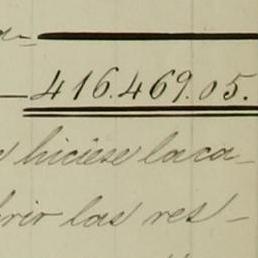 416.469.05.
hiciese laca-
rir las res-